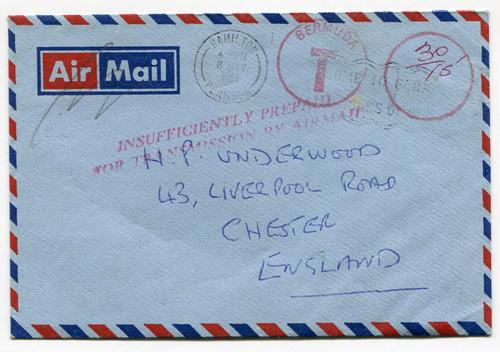 Air Mail
HAMILTON
BERMUDA
T
30
INSUFFICIENTLY PREPAID
FOR TRANSMISSION BY AIRMAIL
H. P. UNDERWOOD
43, LIVERPOOL ROAD
CHESTER
ENGLAND